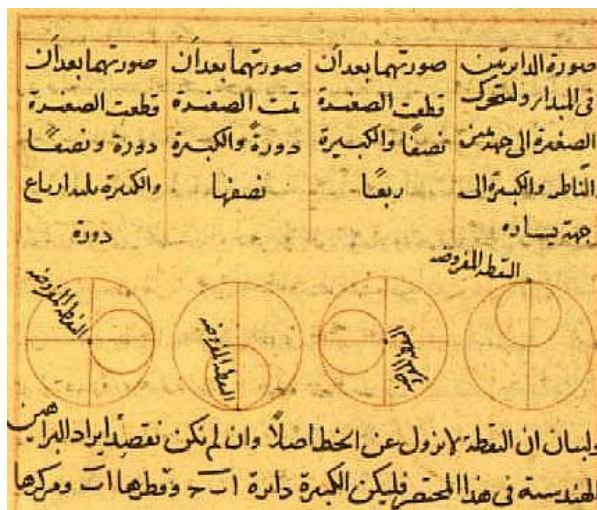 صورة الدايرتين
فى المبدا ولتتحرك
الصغيرة الى جهة يمين
الناظر والكبيرة الى
جهة يساره
صورتهما بعد ان
قطعت الصغيرة
نصفًا والكبيرة
ربعًا
صورتهما بعد ان
تمت الصغيرة
دورةً والكبيرة
نصفها
صورتهما بعد ان
قطعت الصغيرة
دورة ونصفًا
والكبيرة ثلثة ارباع
دورة
النقطة المفروضة
النقطة المفروضة
النقطة المفروضة
ولبيان ان النقطة لا تزول عن الخط اصلًا وان لم نكن نقصد ايراد البراهين
الهندسية فى هذا المختصر فليكن الكبيرة دائرة ا ب ج وقطرها ا ب ومركزها